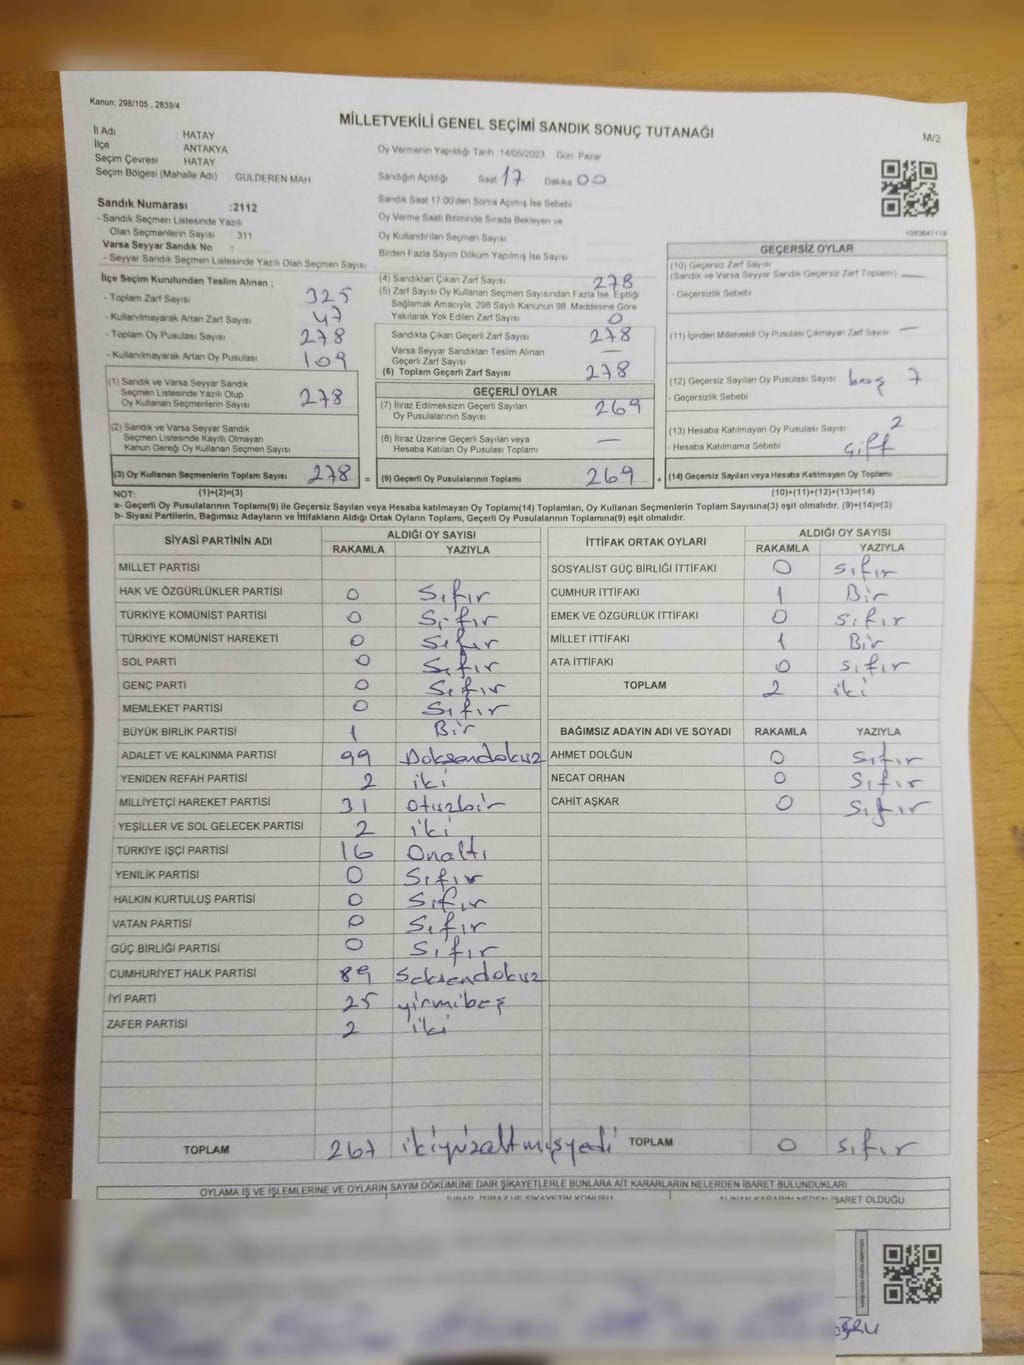 Kanun. 298/105 , 2839/4
MİLLETVEKİLİ GENEL SEÇİMİ SANDIK SONUÇ TUTANAĞI
M/2
İl Adı : HATAY
İlçe : ANTAKYA
Seçim Çevresi : HATAY
Seçim Bölgesi (Mahalle Adı) : GÜLDEREN MAH
Oy Vermenin Yapıldığı Tarih 14/05/2023 Gün Pazar
Sandığın Açıldığı Saat 17 Dakika 00
Sandık Saat 17:00'den Sonra Açımış İse Sebebi
Oy Verme Saati Bitiminde Sırada Bekleyen ve
Oy Kullandırılan Seçmen Sayısı
Birden Fazla Sayım Döküm Yapılmış İse Sayısı
Sandık Numarası : 2112
- Sandık Seçmen Listesinde Yazılı
Olan Seçmenlerin Sayısı : 311
Varsa Seyyar Sandık No :
- Seyyar Sandık Seçmen Listesinde Yazılı Olan Seçmen Sayısı
İlçe Seçim Kurulundan Teslim Alınan ;
- Toplam Zarf Sayısı 325
- Kullanılmayarak Artan Zarf Sayısı 47
- Toplam Oy Pusulası Sayısı 278
- Kullanılmayarak Artan Oy Pusulası 109
(1) Sandık ve Varsa Seyyar Sandık
Seçmen Listesinde Yazılı Olup
Oy Kullanan Seçmenlerin Sayısı 278
(2) Sandık ve Varsa Seyyar Sandık
Seçmen Listesinde Kayıtlı Olmayan
Kanun Gereği Oy Kullanan Seçmen Sayısı
(3) Oy Kullanan Seçmenlerin Toplam Sayısı 278 =
(4) Sandıktan Çıkan Zarf Sayısı 278
(5) Zarf Sayısı Oy Kullanan Seçmen Sayısından Fazla İse, Eşitliği
Sağlamak Amacıyla, 298 Sayılı Kanunun 98. Maddesine Göre
Yakılarak Yok Edilen Zarf Sayısı 0
Sandıkta Çıkan Geçerli Zarf Sayısı 278
Varsa Seyyar Sandıktan Teslim Alınan
Geçerli Zarf Sayısı —
(6) Toplam Geçerli Zarf Sayısı 278
GEÇERLİ OYLAR
(7) İtiraz Edilmeksizin Geçerli Sayılan
Oy Pusulalarının Sayısı 269
(8) İtiraz Üzerine Geçerli Sayılan veya
Hesaba Katılan Oy Pusulası Toplamı —
(9) Geçerli Oy Pusulalarının Toplamı 269 +
GEÇERSİZ OYLAR
(10) Geçersiz Zarf Sayısı
(Sandık ve Varsa Seyyar Sandık Geçersiz Zarf Toplamı) —
- Geçersizlik Sebebi
(11) İçinden Milletvekili Oy Pusulası Çıkmayan Zarf Sayısı —
(12) Geçersiz Sayılan Oy Pusulası Sayısı boş 7
- Geçersizlik Sebebi
(13) Hesaba Katılmayan Oy Pusulası Sayısı 2
- Hesaba Katılmama Sebebi Çift
(14) Geçersiz Sayılan veya Hesaba Katılmayan Oy Toplamı
NOT: (1)+(2)=(3) (10)+(11)+(12)+(13)=(14)
a- Geçerli Oy Pusulalarının Toplamı(9) ile Geçersiz Sayılan veya Hesaba katılmayan Oy Toplamı(14) Toplamları, Oy Kullanan Seçmenlerin Toplam Sayısına(3) eşit olmalıdır. (9)+(14)=(3)
b- Siyasi Partilerin, Bağımsız Adayların ve İttifakların Aldığı Ortak Oyların Toplamı, Geçerli Oy Pusulalarının Toplamına(9) eşit olmalıdır.
SİYASİ PARTİNİN ADI ALDIĞI OY SAYISI
RAKAMLA YAZIYLA
MİLLET PARTİSİ
HAK VE ÖZGÜRLÜKLER PARTİSİ 0 Sıfır
TÜRKİYE KOMÜNİST PARTİSİ 0 Sıfır
TÜRKİYE KOMÜNİST HAREKETİ 0 Sıfır
SOL PARTİ 0 Sıfır
GENÇ PARTİ 0 Sıfır
MEMLEKET PARTİSİ 0 Sıfır
BÜYÜK BİRLİK PARTİSİ 1 Bir
ADALET VE KALKINMA PARTİSİ 99 Doksandokuz
YENİDEN REFAH PARTİSİ 2 iki
MİLLİYETÇİ HAREKET PARTİSİ 31 otuzbir
YEŞİLLER VE SOL GELECEK PARTİSİ 2 iki
TÜRKİYE İŞÇİ PARTİSİ 16 Onaltı
YENİLİK PARTİSİ 0 Sıfır
HALKIN KURTULUŞ PARTİSİ 0 Sıfır
VATAN PARTİSİ 0 Sıfır
GÜÇ BİRLİĞİ PARTİSİ 0 Sıfır
CUMHURİYET HALK PARTİSİ 89 Seksendokuz
İYİ PARTİ 25 yirmibeş
ZAFER PARTİSİ 2 iki
TOPLAM 267 ikiyüzaltmışyedi
İTTİFAK ORTAK OYLARI ALDIĞI OY SAYISI
RAKAMLA YAZIYLA
SOSYALİST GÜÇ BİRLİĞİ İTTİFAKI 0 sıfır
CUMHUR İTTİFAKI 1 Bir
EMEK VE ÖZGÜRLÜK İTTİFAKI 0 sıfır
MİLLET İTTİFAKI 1 Bir
ATA İTTİFAKI 0 sıfır
TOPLAM 2 iki
BAĞIMSIZ ADAYIN ADI VE SOYADI RAKAMLA YAZIYLA
AHMET DOLĞUN 0 Sıfır
NECAT ORHAN 0 Sıfır
CAHİT AŞKAR 0 Sıfır
TOPLAM 0 sıfır
OYLAMA İŞ VE İŞLEMLERİNE VE OYLARIN SAYIM DÖKÜMÜNE DAİR ŞİKAYETLERLE BUNLARA AİT KARARLARIN NELERDEN İBARET BULUNDUKLARI
İBARET OLDUĞU